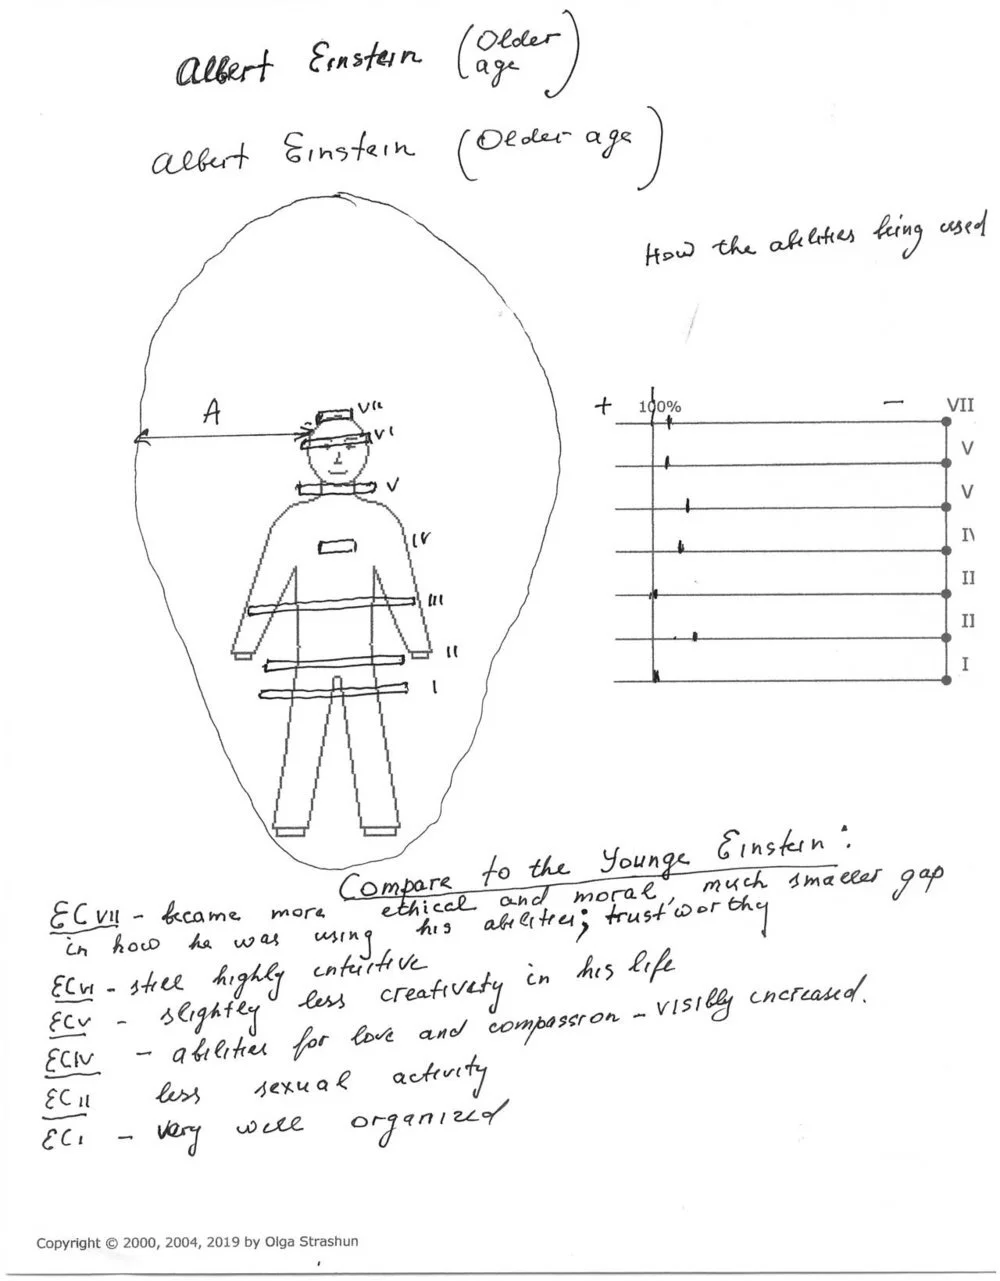 Albert Einstein (Older
age)
Albert Einstein (Older age)
How the abilities being used
A
VII
VI
V
IV
III
II
I
+ 100% - VII
V
V
IV
II
II
I
Compare to the Younge Einstein:
ECVII - became more ethical and moral, much smaller gap
in how he was using his abilities; trustworthy
ECVI - still highly intuitive
ECV - slightly less creativety in his life
ECIV - abilities for love and compassion - visibly increased.
ECII less sexual activity
ECI - very well organized
Copyright © 2000, 2004, 2019 by Olga Strashun